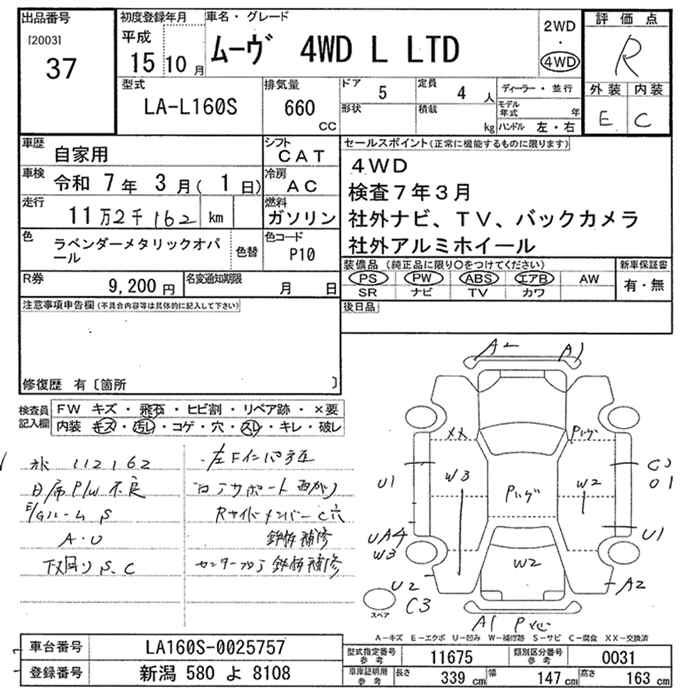 出品番号
[2003]
37
初度登録年月
平成
15年10月
車名・グレード
ムーヴ 4WD L LTD
2WD
・
4WD
評価点
R
外装 内装
E C
型式
LA-L160S
排気量
660
CC
ドア 5
形状
定員 4人
積載 kg
ディーラー・並行
モデル年式 年
ハンドル 左・右
車歴 自家用
シフト CAT
車検 令和 7年 3月( 1日)
冷房 AC
走行 11万2千162 km
燃料 ガソリン
色 ラベンダーメタリックオパール
色替
色コード P10
R券 9,200円
名変通知期限 月 日
セールスポイント(正常に機能するものに限ります)
4WD
検査7年3月
社外ナビ、TV、バックカメラ
社外アルミホイール
装備品(純正品に限り○をつけてください)
PS PW ABS エアB AW
SR ナビ TV カワ
新車保証書
有・無
後日品
注意事項申告欄(不具合内容等は具体的に記入して下さい)
修復歴 有〔箇所 〕
検査員記入欄
FW キズ・飛石・ヒビ割・リペア跡・×要
内装 キズ・汚レ・コゲ・穴・スレ・キレ・破レ
112162
P/W 不良
E/Gルーム S
A・U
下回りS、C
左Fインパネ歪
Rサイドメンバー C穴
鈑金補修
センターフロア 鈑金補修
A2 A1
XX
W3
W2
U1
UA4
W3
U2
C3
スペア
U1
A2
W2
A1
A-キズ E-エクボ U-凹み W-補修跡 S-サビ C-腐食 XX-交換済
車台番号 LA160S-0025757
登録番号 新潟 580 よ 8108
型式指定番号 参考 11675
類別区分番号 参考 0031
車庫証明用 参考 長さ 339 cm 幅 147 cm 高さ 163 cm